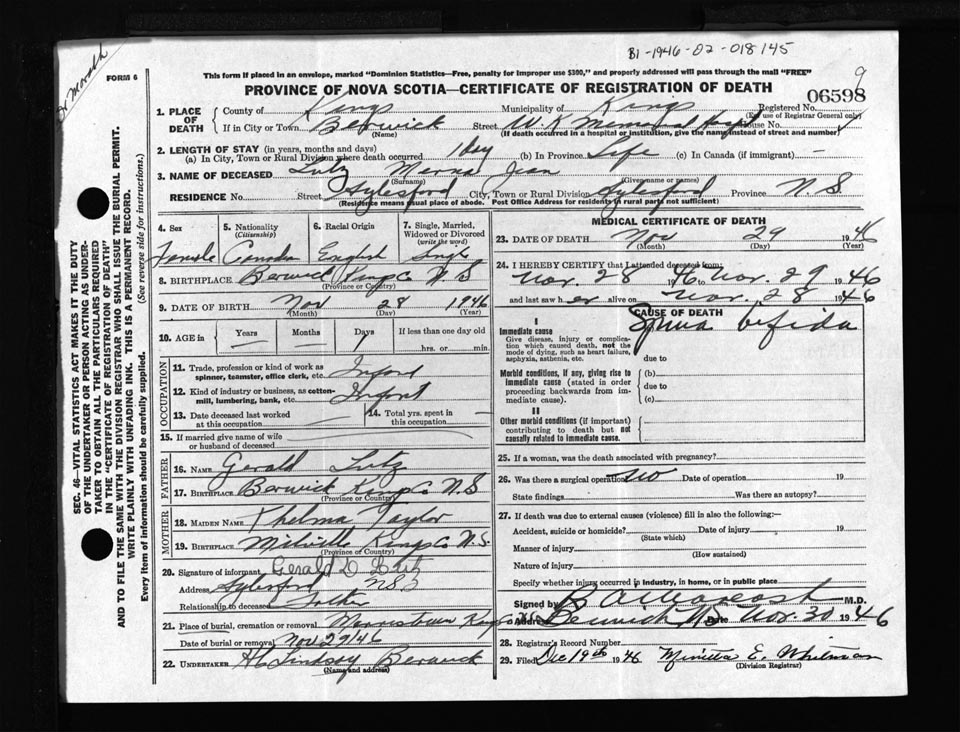 B1-1946-02-018145
FORM 6
This form if placed in an envelope, marked "Dominion Statistics—Free, penalty for improper use $300," and properly addressed will pass through the mail "FREE"
PROVINCE OF NOVA SCOTIA—CERTIFICATE OF REGISTRATION OF DEATH
9
06598
1. PLACE OF DEATH County of Kings Municipality of Kings Registered No. (For use of Registrar General only)
If in City or Town Berwick (Name) Street W. K. Memorial Hosp House No.
(If death occurred in a hospital or institution, give the name instead of street and number)
2. LENGTH OF STAY (in years, months and days)
(a) In City, Town or Rural Division where death occurred 1 Day (b) In Province Life (c) In Canada (if immigrant) —
3. NAME OF DECEASED Lutz Merna Jean
(Surname) (Given name or names)
RESIDENCE No. Street Aylesford City, Town or Rural Division Aylesford Province N.S
(Residence means usual place of abode. Post Office Address for residents in rural parts not sufficient)
4. Sex 5. Nationality (Citizenship) 6. Racial Origin 7. Single, Married, Widowed or Divorced (write the word)
Female Canada English Single
8. BIRTHPLACE Berwick Kings Co N.S
(Province or Country)
9. DATE OF BIRTH Nov 28 1946
(Month) (Day) (Year)
10. AGE in Years Months Days If less than one day old
hrs. or min.
OCCUPATION
11. Trade, profession or kind of work as spinner, teamster, office clerk, etc. Infant
12. Kind of industry or business, as cotton-mill, lumbering, bank, etc. Infant
13. Date deceased last worked at this occupation 14. Total yrs. spent in this occupation
15. If married give name of wife or husband of deceased
FATHER
16. NAME Gerald Lutz
17. BIRTHPLACE Berwick Kings Co N.S
(Province or Country)
MOTHER
18. MAIDEN NAME Thelma Taylor
19. BIRTHPLACE Melville Kings Co N.S.
(Province or Country)
20. Signature of informant Gerald D Lutz
Address Aylesford NS
Relationship to deceased Father
21. Place of burial, cremation or removal Morristown Kings Co
Date of burial or removal Nov 29/46
22. UNDERTAKER H Lindsey Berwick
(Name and address)
MEDICAL CERTIFICATE OF DEATH
23. DATE OF DEATH Nov 29 1946
(Month) (Day) (Year)
24. I HEREBY CERTIFY that I attended deceased from:
Nov. 28 1946 Nov. 29 1946
and last saw her alive on Nov. 28 1946
CAUSE OF DEATH
I
Immediate cause Spina bifida
Give disease, injury or complication which caused death, not the mode of dying, such as heart failure, asphyxia, asthenia, etc.
due to
Morbid conditions, if any, giving rise to immediate cause (stated in order proceeding backwards from immediate cause).
(b)
due to
(c)
II
Other morbid conditions (if important) contributing to death but not causally related to immediate cause.
25. If a woman, was the death associated with pregnancy?
26. Was there a surgical operation no Date of operation 19
State findings Was there an autopsy?
27. If death was due to external causes (violence) fill in also the following:—
Accident, suicide or homicide? Date of injury 19
(State which)
Manner of injury
(How sustained)
Nature of injury
Specify whether injury occurred in industry, in home, or in public place
Signed by M.D.
Address Berwick NS Date Nov. 30 1946
28. Registrar's Record Number
29. Filed Dec 19th 1946 Minetta E. Whitman
(Division Registrar)
SEC. 46—VITAL STATISTICS ACT MAKES IT THE DUTY
OF THE UNDERTAKER OR PERSON ACTING AS UNDER-
TAKER TO OBTAIN ALL THE PARTICULARS REQUIRED
IN THE "CERTIFICATE OF REGISTRATION OF DEATH"
AND TO FILE THE SAME WITH THE DIVISION REGISTRAR WHO SHALL ISSUE THE BURIAL PERMIT.
WRITE PLAINLY WITH UNFADING INK. THIS IS A PERMANENT RECORD.
Every item of information should be carefully supplied. (See reverse side for instructions.)